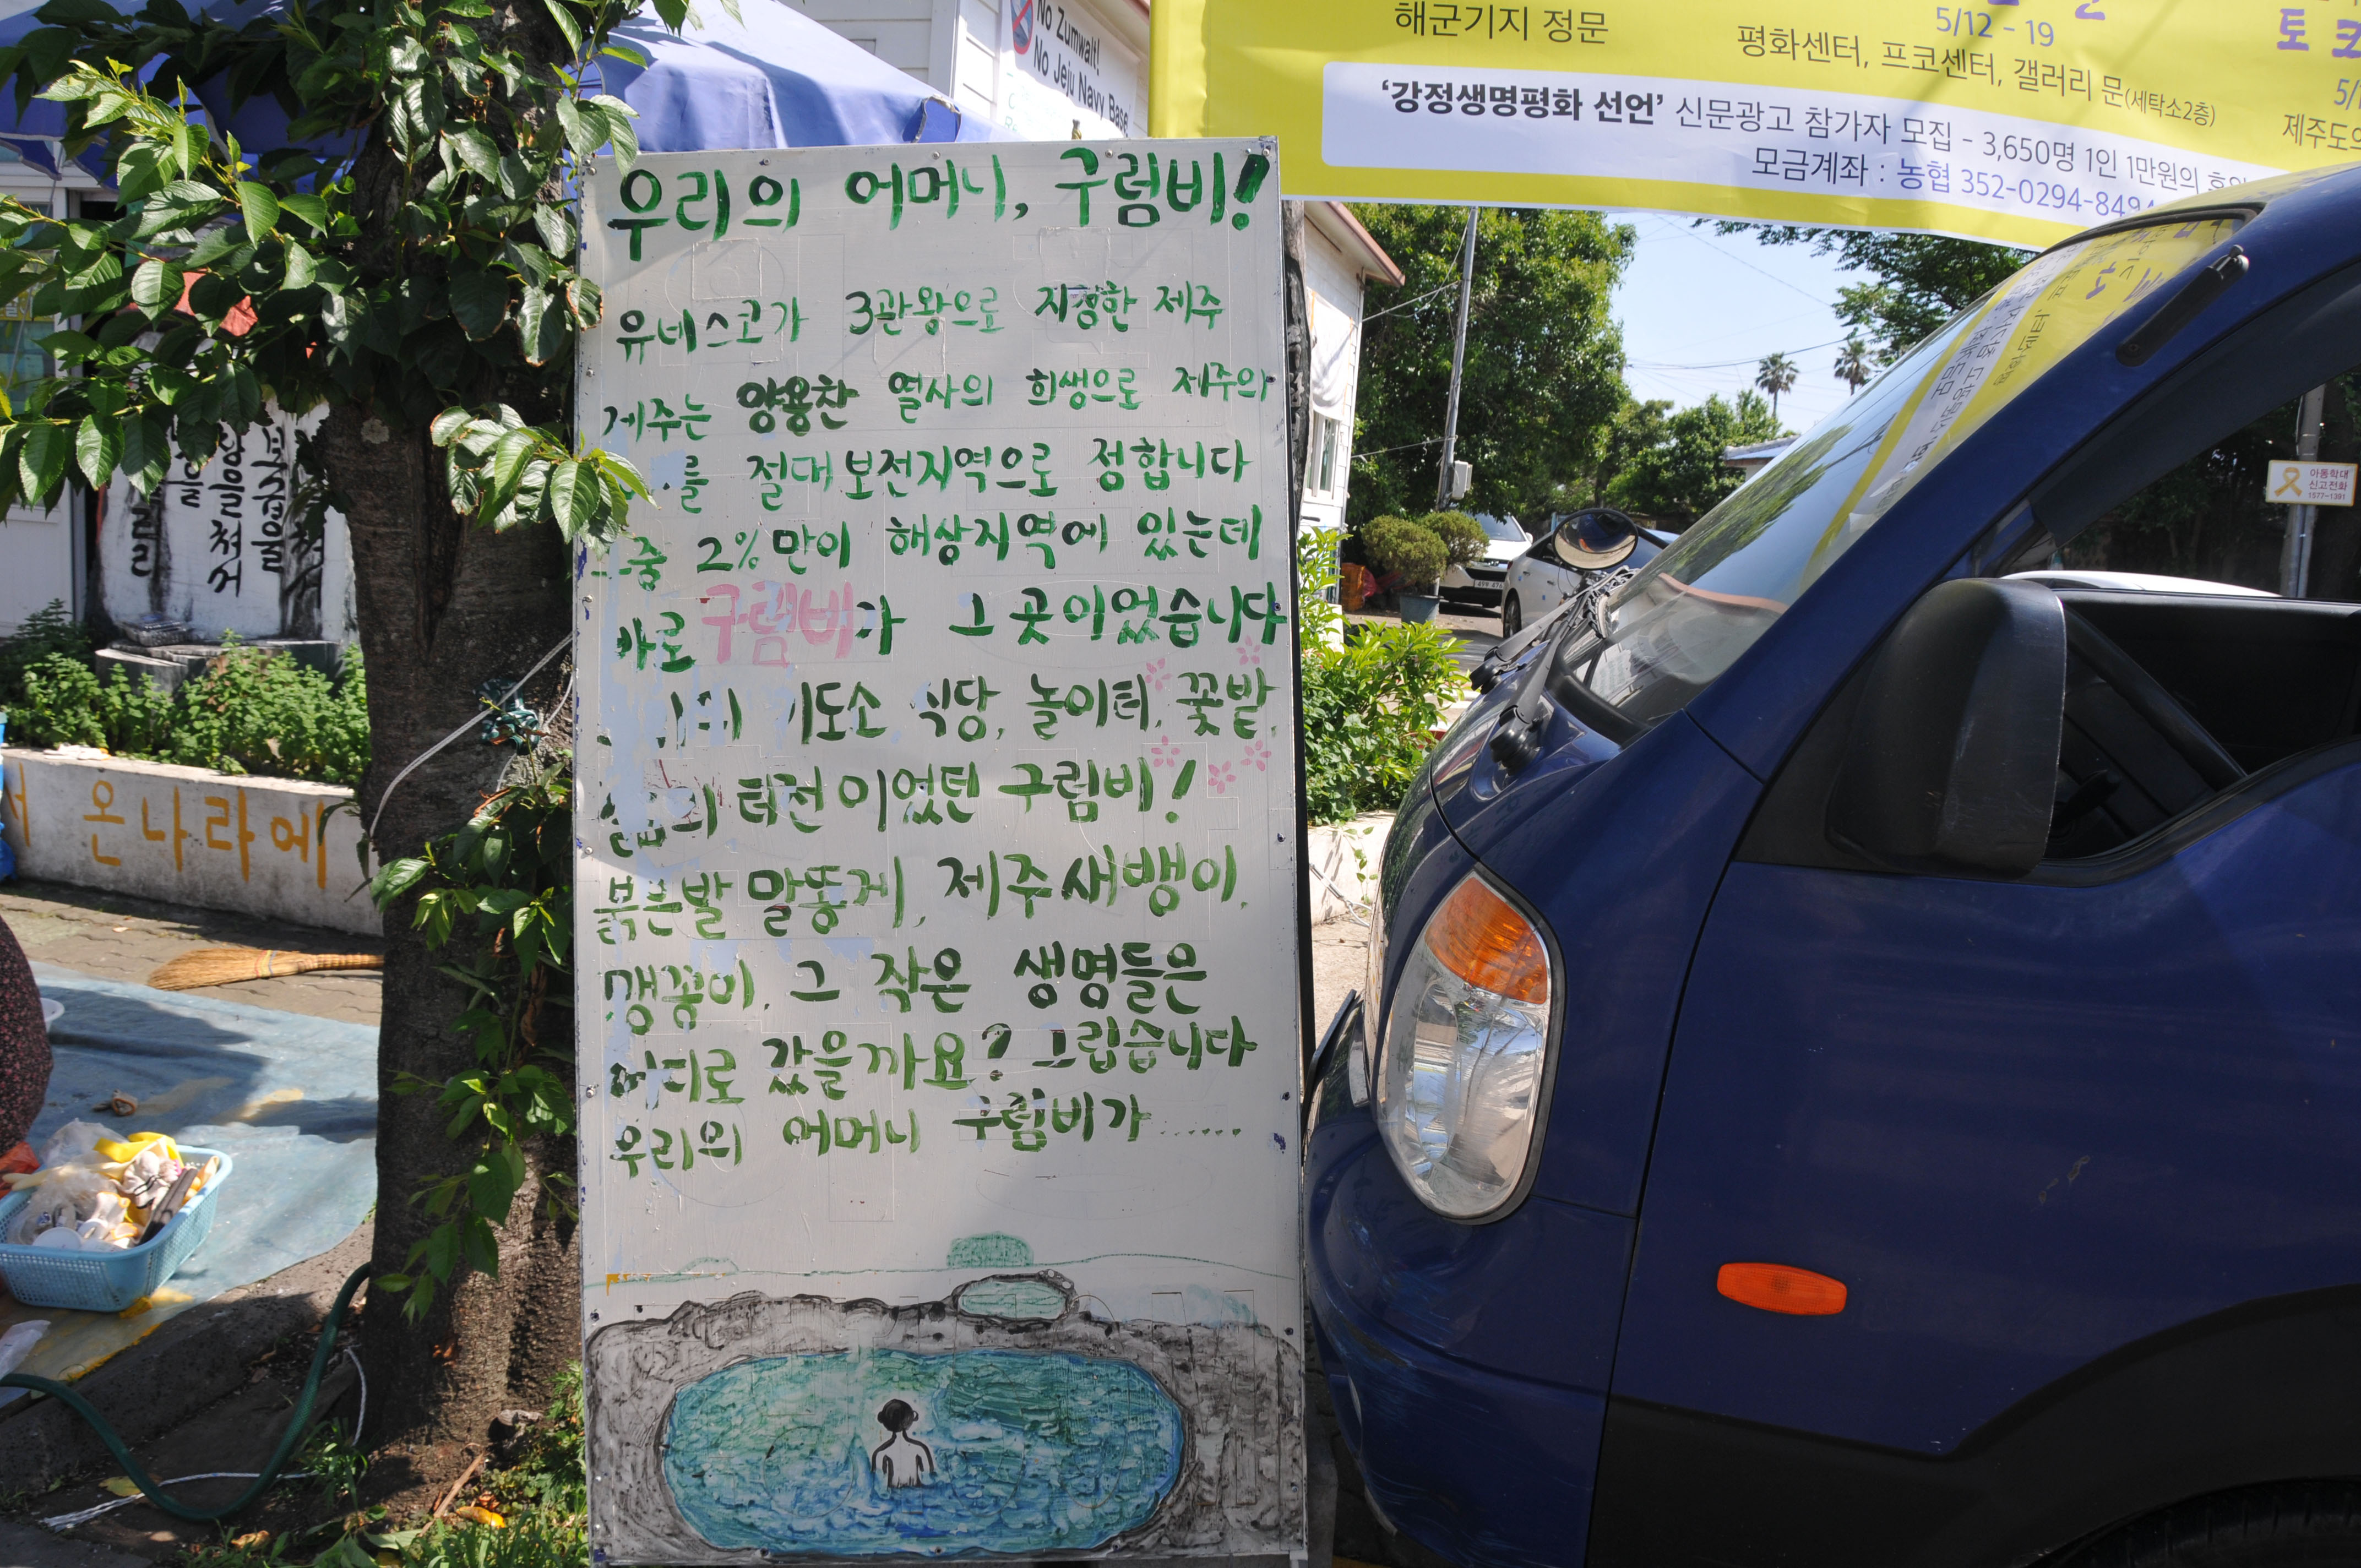 No Zumwalt!
No Jeju Navy Base
해군기지 정문
5/12 - 19
평화센터, 프코센터, 갤러리 문(세탁소2층)
'강정생명평화 선언' 신문광고 참가자 모집 - 3,650명 1인 1만원의
모금계좌 : 농협 352-0294-849
우리의 어머니, 구럼비!
유네스코가 3관왕으로 지정한 제주
제주는 양용찬 열사의 희생으로 제주의
를 절대보전지역으로 정합니다
중 2%만이 해상지역에 있는데
바로 구럼비가 그 곳이었습니다
기도소 식당, 놀이터, 꽃밭,
삶의 터전이었던 구럼비!
붉은발 말똥게, 제주새뱅이,
맹꽁이, 그 작은 생명들은
어디로 갔을까요? 그립습니다
우리의 어머니 구럼비가 ......
온나라에
아동학대
신고전화
1577-1391